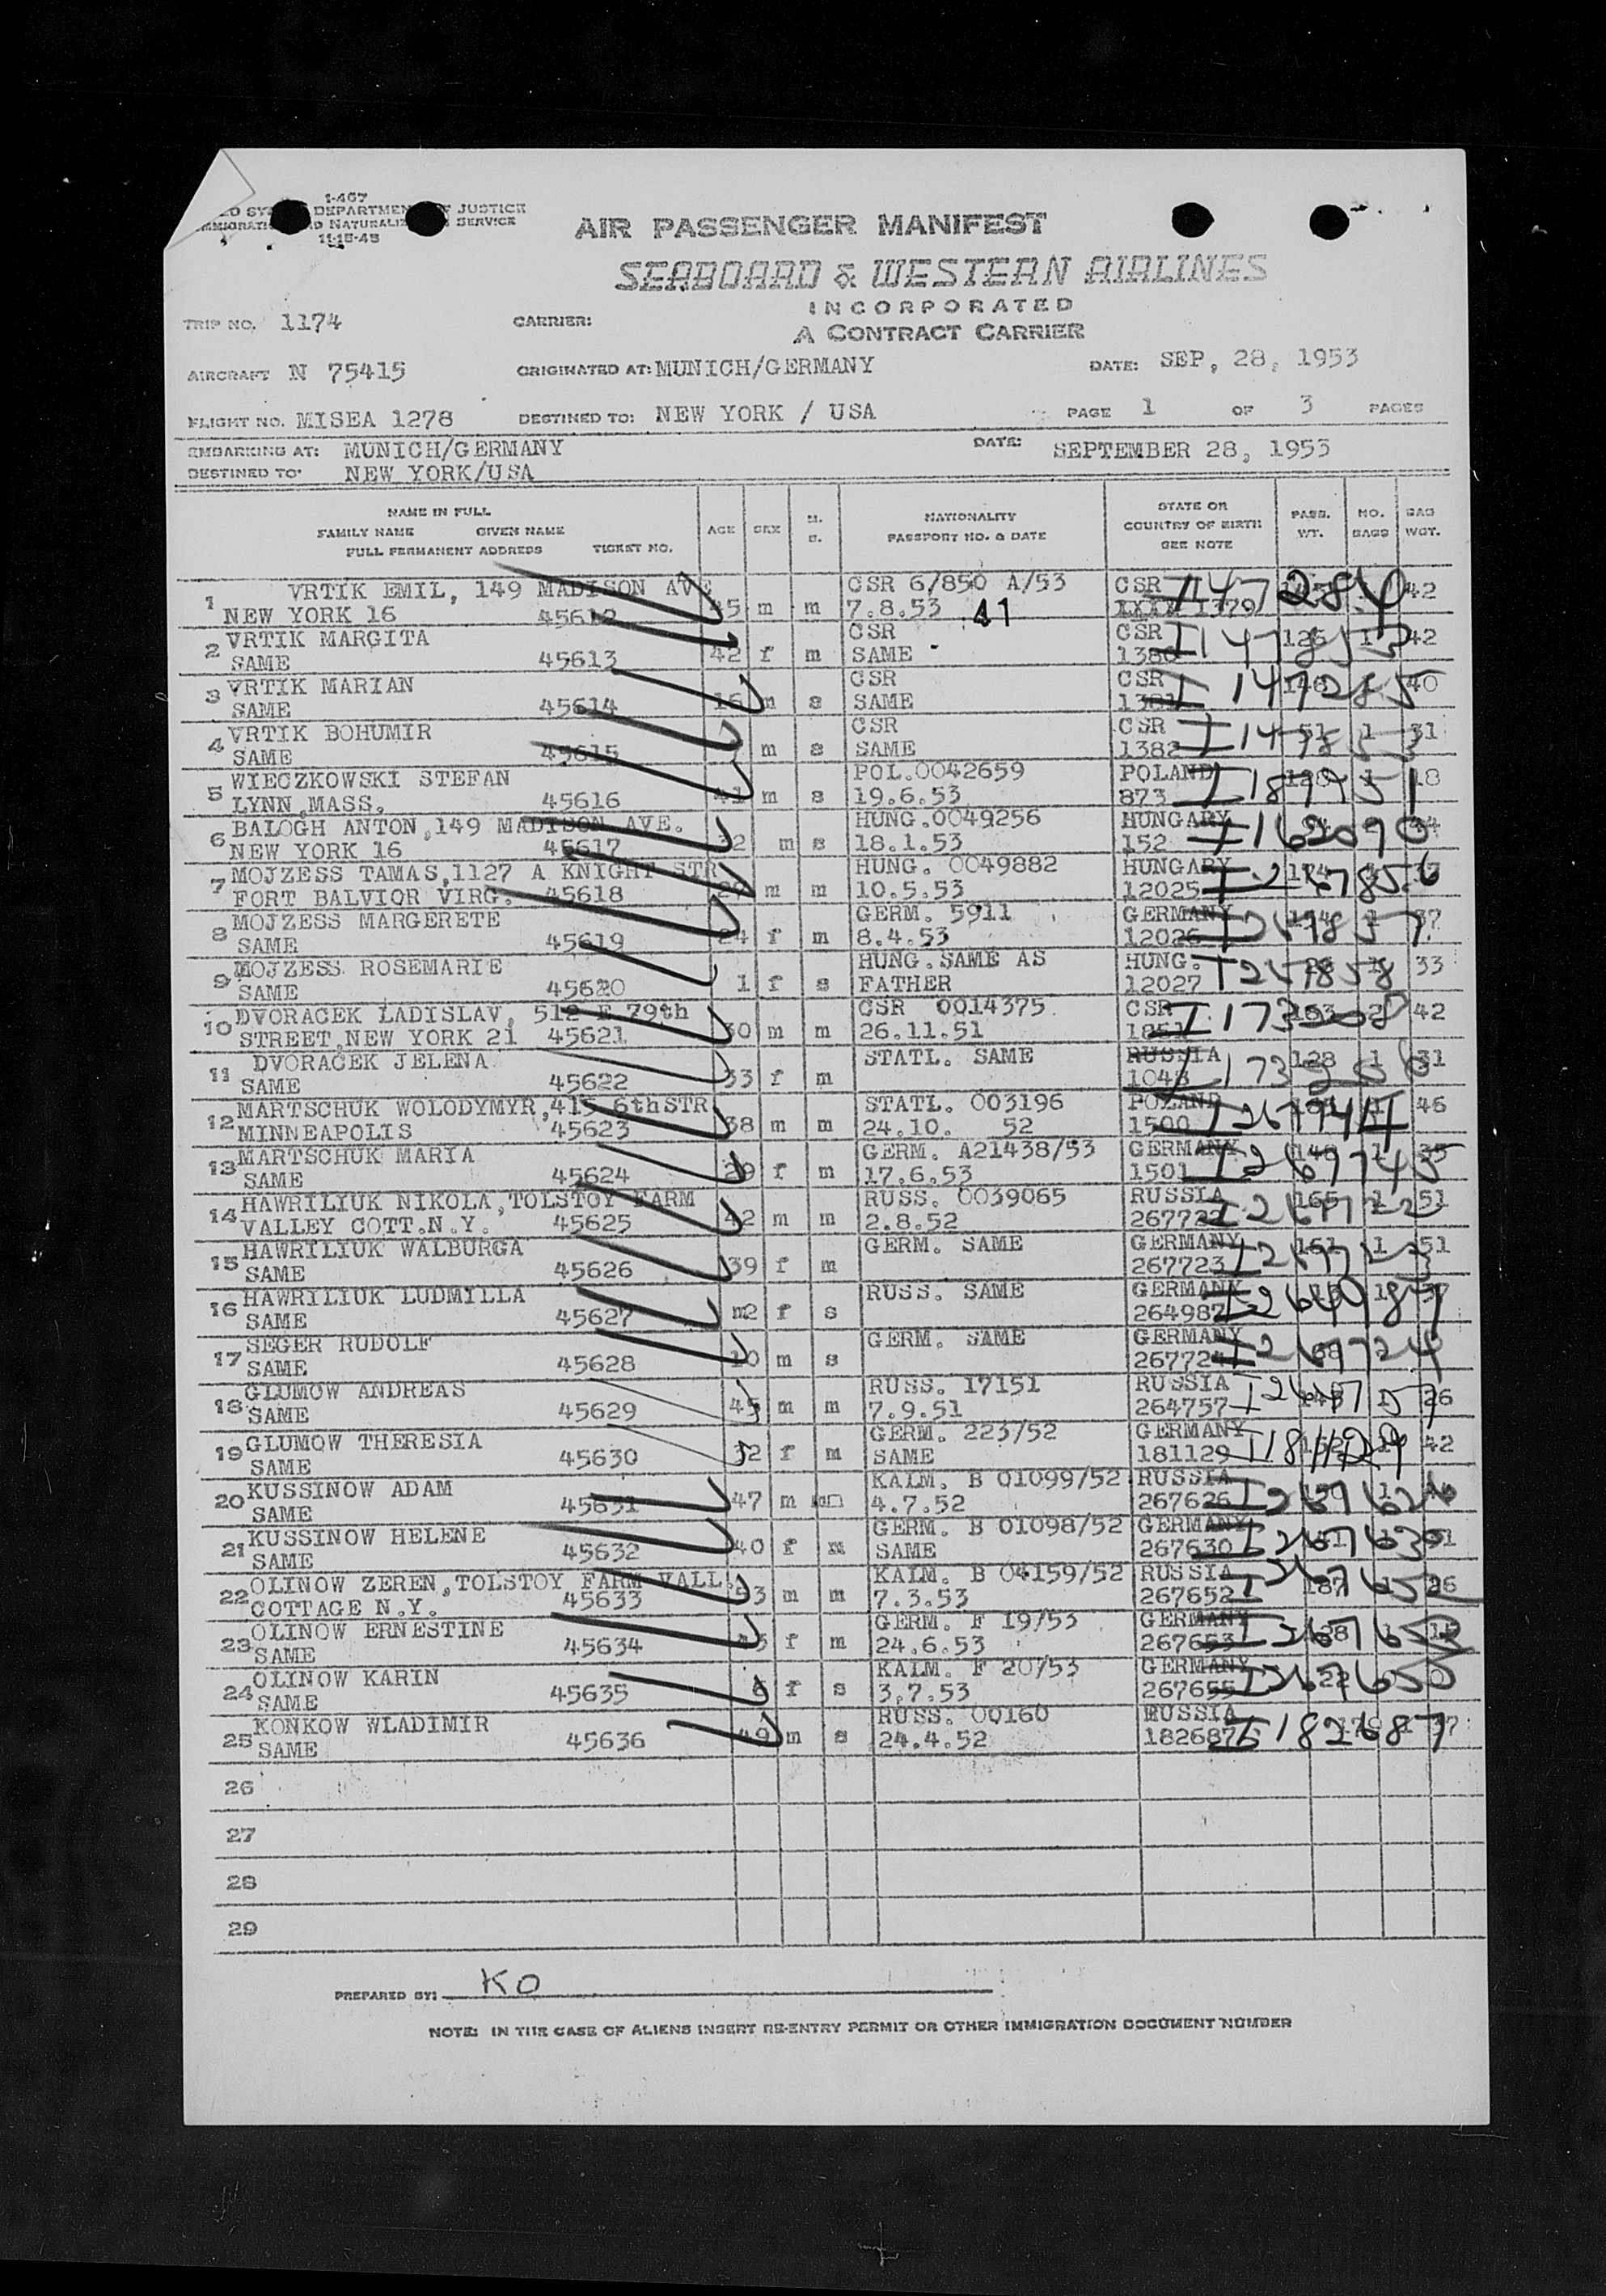 1-467
DEPARTMENT JUSTICE
SERVICE
11-15-45
AIR PASSENGER MANIFEST
SEABOARD & WESTERN AIRLINES
INCORPORATED
A CONTRACT CARRIER
TRIP NO. 1174 CARRIER:
AIRCRAFT N 75415 ORIGINATED AT: MUNICH/GERMANY DATE: SEP, 28, 1953
FLIGHT NO. MISEA 1278 DESTINED TO: NEW YORK / USA PAGE 1 OF 3 PAGES
EMBARKING AT: MUNICH/GERMANY DATE: SEPTEMBER 28, 1953
DESTINED TO: NEW YORK/USA
NAME IN FULL
FAMILY NAME GIVEN NAME
FULL PERMANENT ADDRESS TICKET NO.
AGE SEX M. S.
NATIONALITY
PASSPORT NO. & DATE
STATE OR
COUNTRY OF BIRTH
SEE NOTE
PASS. WT.
NO. BAGS
BAG WGT.
1 VRTIK EMIL, 149 MADISON AVE CSR 6/850 A/53 CSR I147284
NEW YORK 16 45612 45 m m 7.8.53 41 1379 42
2 VRTIK MARGITA CSR CSR 126 1 42
SAME 45613 42 f m SAME 1380
3 VRTIK MARIAN CSR CSR I147285 40
SAME 45614 16 m s SAME 1381
4 VRTIK BOHUMIR CSR CSR 51 1 31
SAME 45615 m s SAME 1382
5 WIECZKOWSKI STEFAN POL.0042659 POLAND 18
LYNN,MASS. 45616 41 m s 19.6.53 873
6 BALOGH ANTON,149 MADISON AVE. HUNG.0049256 HUNGARY I162090
NEW YORK 16 45617 32 m s 18.1.53 152
7 MOJZESS TAMAS,1127 A KNIGHT STR HUNG. 0049882 HUNGARY
FORT BALVIOR VIRG. 45618 29 m m 10.5.53 12025
8 MOJZESS MARGERETE GERM. 5911 GERMANY 37
SAME 45619 24 f m 8.4.53 12026
9 MOJZESS ROSEMARIE HUNG.SAME AS HUNG. I267858 33
SAME 45620 1 f s FATHER 12027
10 DVORACEK LADISLAV, 512 E 79th CSR 0014375 CSR 163 2 42
STREET,NEW YORK 21 45621 30 m m 26.11.51 1851
11 DVORACEK JELENA STATL. SAME RUSSIA 128 1 31
SAME 45622 33 f m 1048
12 MARTSCHUK WOLODYMYR,415 6thSTR STATL. 003196 POLAND I267744 46
MINNEAPOLIS 45623 38 m m 24.10. 52 1500
13 MARTSCHUK MARIA GERM. A21438/53 GERMANY I267745
SAME 45624 29 f m 17.6.53 1501
14 HAWRILIUK NIKOLA,TOLSTOY FARM RUSS. 0039065 RUSSIA 165 1 51
VALLEY COTT.N.Y. 45625 42 m m 2.8.52 267722
15 HAWRILIUK WALBURGA GERM. SAME GERMANY 161 1 51
SAME 45626 39 f m 267723
16 HAWRILIUK LUDMILLA RUSS. SAME GERMANY I264987
SAME 45627 m2 f s 264987
17 SEGER RUDOLF GERM. SAME GERMANY I267724
SAME 45628 10 m s 267724
18 GLUMOW ANDREAS RUSS. 17151 RUSSIA 26
SAME 45629 45 m m 7.9.51 264757
19 GLUMOW THERESIA GERM. 223/52 GERMANY 42
SAME 45630 32 f m SAME 181129 I181129
20 KUSSINOW ADAM KALM. B 01099/52 RUSSIA
SAME 45631 47 m m 4.7.52 267626 I267626
21 KUSSINOW HELENE GERM. B 01098/52 GERMANY
SAME 45632 40 f m SAME 267630 I267630
22 OLINOW ZEREN,TOLSTOY FARM VALL. KALM. B 04159/52 RUSSIA I267652
COTTAGE N.Y. 45633 53 m m 7.3.53 267652 187 1 26
23 OLINOW ERNESTINE GERM. F 19/53 GERMANY
SAME 45634 f m 24.6.53 267653 I267653
24 OLINOW KARIN KALM. F 20/53 GERMANY
SAME 45635 6 f s 3.7.53 267655 I267655
25 KONKOW WLADIMIR RUSS. 00160 RUSSIA
SAME 45636 49 m s 24.4.52 182687 I182687
26
27
28
29
PREPARED BY: KO
NOTE: IN THE CASE OF ALIENS INSERT RE-ENTRY PERMIT OR OTHER IMMIGRATION DOCUMENT NUMBER